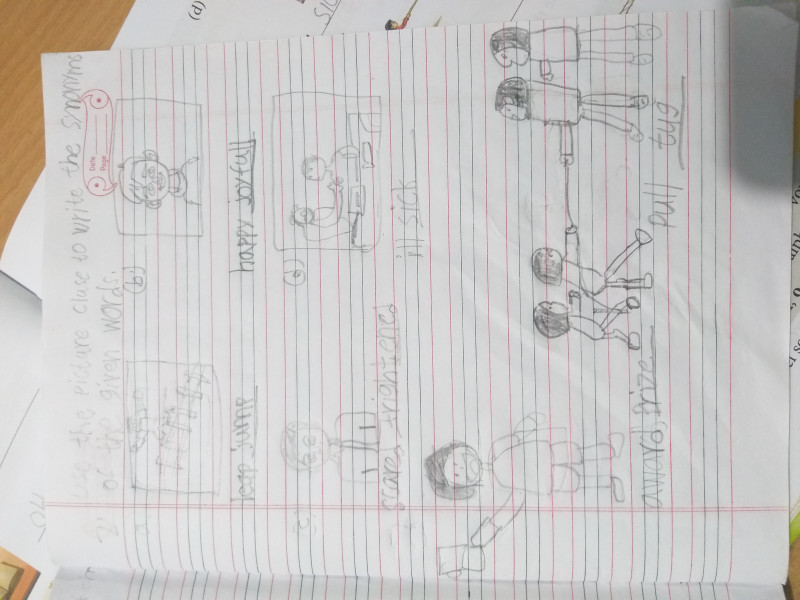 3. use the picture cluse to write the sinonims
of the given words.
Date
Page
a.
(b)
leap jump
happy joyfull
(c)
(d)
scare, frightened
ill sick
award, prize
pull tug
(d)